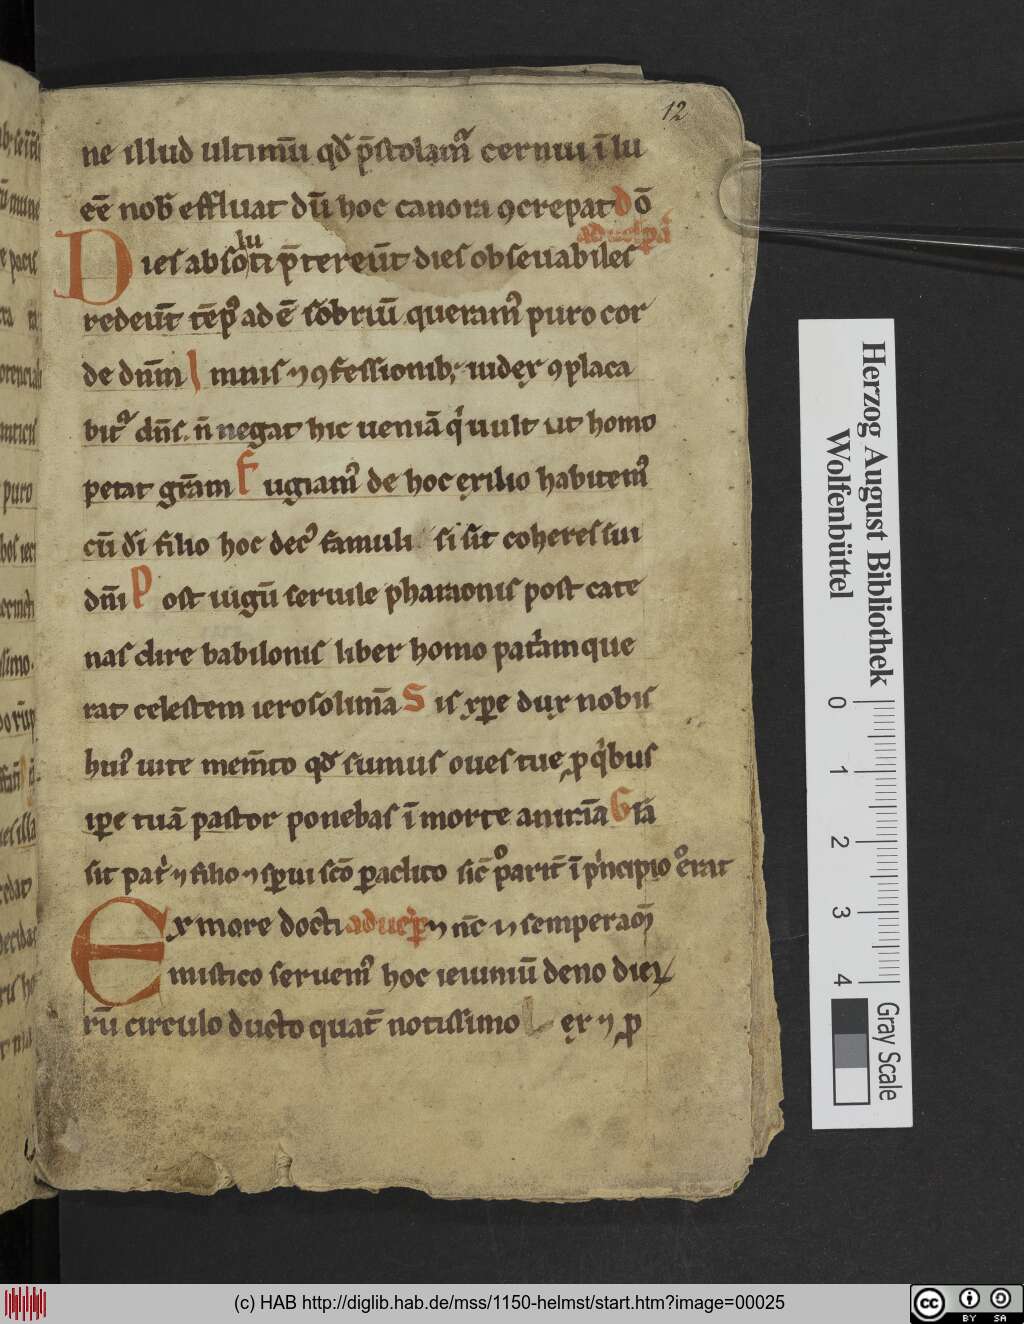 12
ne illud ultimū qđ p̄stolam᷒ cernui ī lu
cē nob̄ effluat dū hoc canora ꝯcrepat d ō
ad uesꝑā
Dies absoluti p̄tereūt dies obseuabiles
redeūt tēpꝰ ad ē sobriū queramꝰ puro cor
de dn̄m
mnis ⁊ ꝯfessionib; iudex ꝯplaca
bit᷒ dn̄s n̄ negat hic ueniā qͥ uult ut homo
petat gr̄am Fugiamꝰ de hoc exilio habitemꝰ
cū dī filio hoc decꝰ famuli si sit coheres sui
dn̄i Post iugū seruile pharaonis post cate
nas dire babilonis liber homo patͥam que
rat celestem ierosolimā Sis xp̄e dux nobis
huiꝰ uite mem̄to qđ sumus oues tue ꝓ qͥbus
ip̄e tuā pastor ponebas ī morte animā Gl̄a
sit patͥ ⁊ filio ⁊ sp̄ui scō paclito sic̄ ꝑarit̄ ī pͥncipio erat
Ex more docti ad uesp̄ ⁊ nc̄ ⁊ semper am̄
mistico seruemꝰ hoc ieiuniū deno dieꝝ
rū circulo ducto quat̄ notissimo Lex ⁊ ꝓ
Herzog August Bibliothek
Wolfenbüttel
0 1 2 3 4
Gray Scale
(c) HAB http://diglib.hab.de/mss/1150-helmst/start.htm?image=00025
cc BY SA